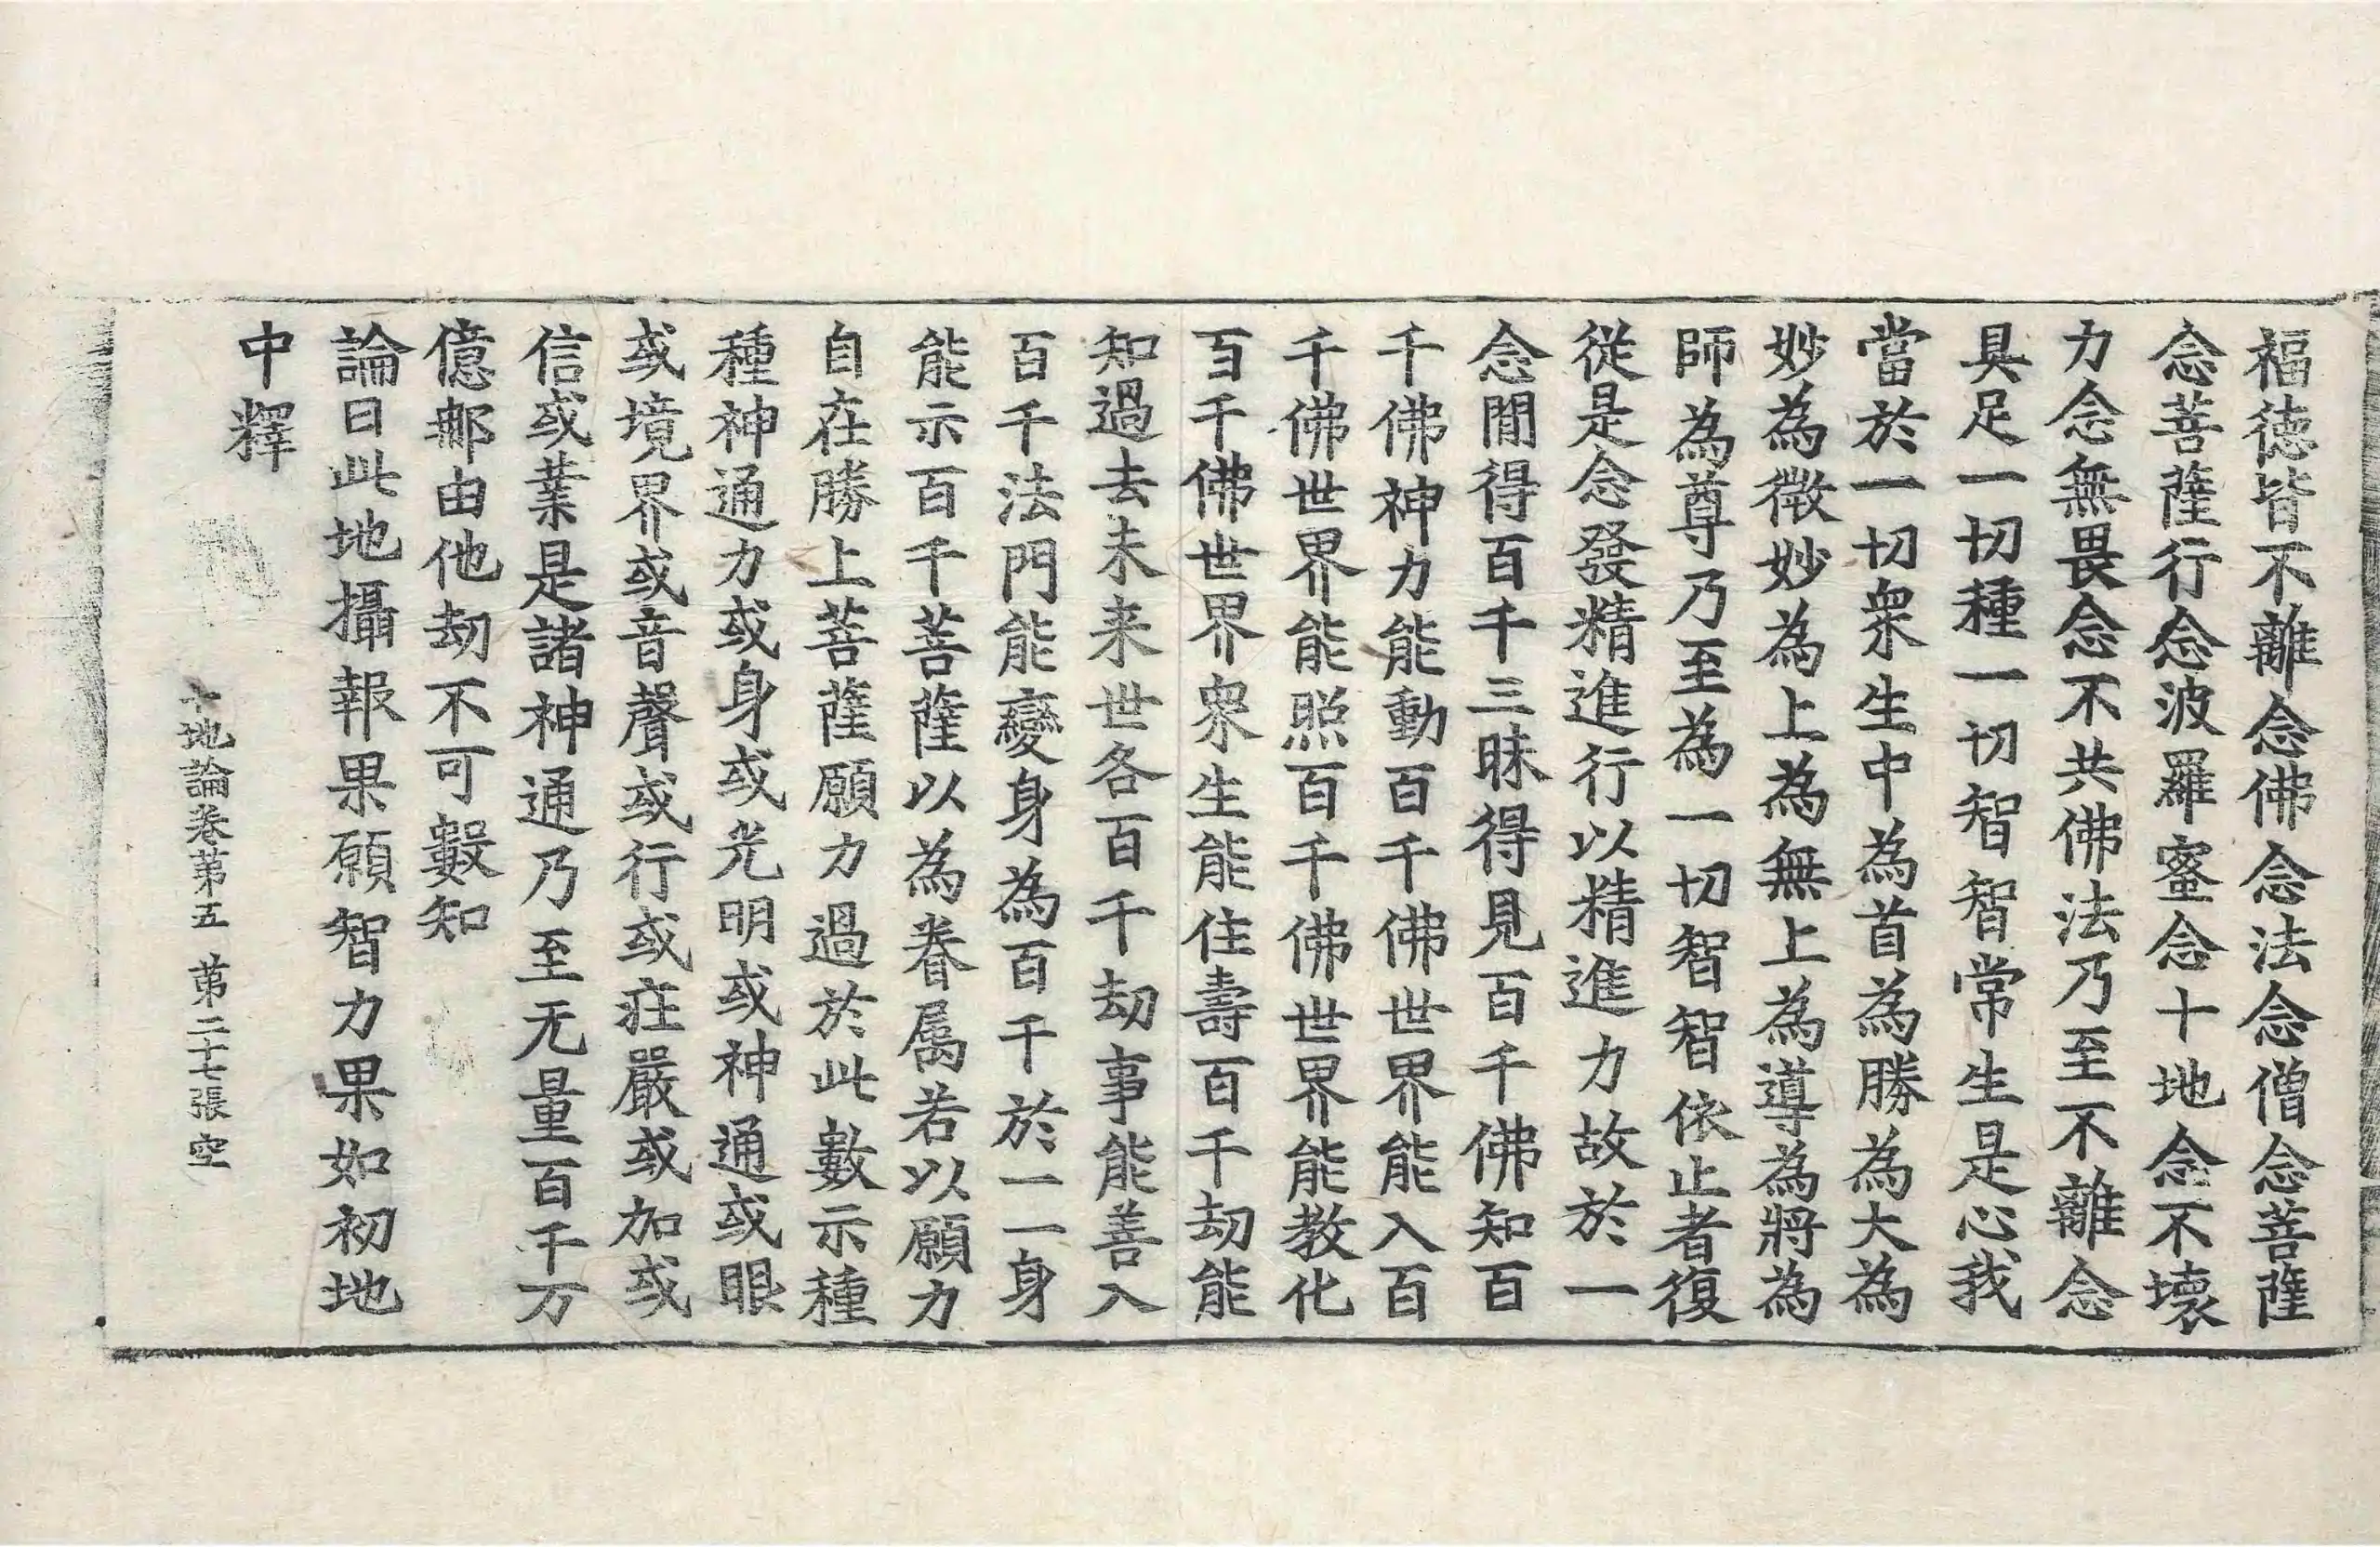 福徳皆不離念佛念法念僧念菩薩
念菩薩行念波羅蜜念十地念不壞
力念無畏念不共佛法乃至不離念
具足一切種一切智智常生是心我
當於一切衆生中為首為勝為大為
妙為微妙為上為無上為導為將為
師為尊乃至為一切智智依止者復
從是念發精進行以精進力故於一
念閒得百千三昧得見百千佛知百
千佛神力能動百千佛世界能入百
千佛世界能照百千佛世界能教化
百千佛世界衆生能住壽百千劫能
知過去未来世各百千劫事能善入
百千法門能變身為百千於一一身
能示百千菩薩以為眷屬若以願力
自在勝上菩薩願力過於此數示種
種神通力或身或光明或神通或眼
或境界或音聲或行或庄嚴或加或
信或業是諸神通乃至无量百千万
億那由他劫不可數知
論曰此地攝報果願智力果如初地
中釋
十地論卷第五 第二十七張 空